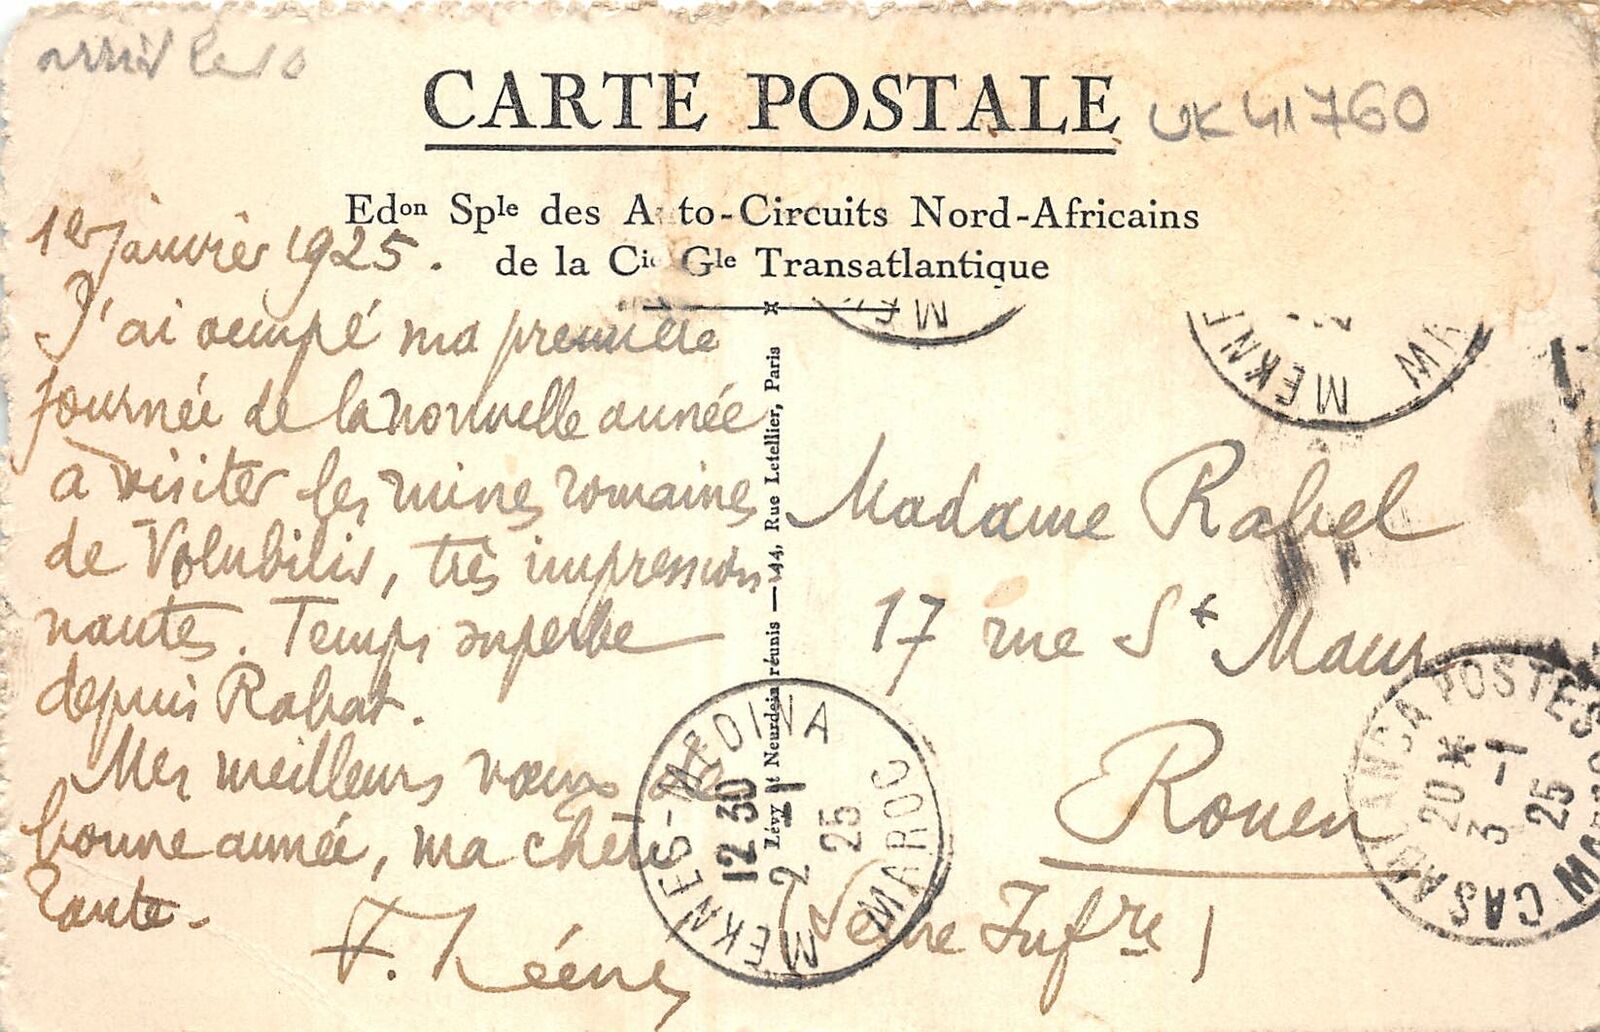 arrivé le 10
CARTE POSTALE
UK 41760
Edon Sple des Auto-Circuits Nord-Africains
de la Cie Gle Transatlantique
1er janvier 1925.
J'ai occupé ma première
journée de la nouvelle année
à visiter les ruines romaines
de Volubilis, très impression
nantes. Temps superbe
depuis Rabat.
Mes meilleurs vœux de
bonne année, ma chère
Tante.
Lévy et Neurdein réunis — 44, Rue Letellier, Paris
Madame Rabel
17 rue St Maur
Rouen
(Seine Infre)
MEKNES-MEDINA
12 30
2 -1
25
MAROC
CASABLANCA POSTES
20 *
3 -1
25
MAROC
MEKN